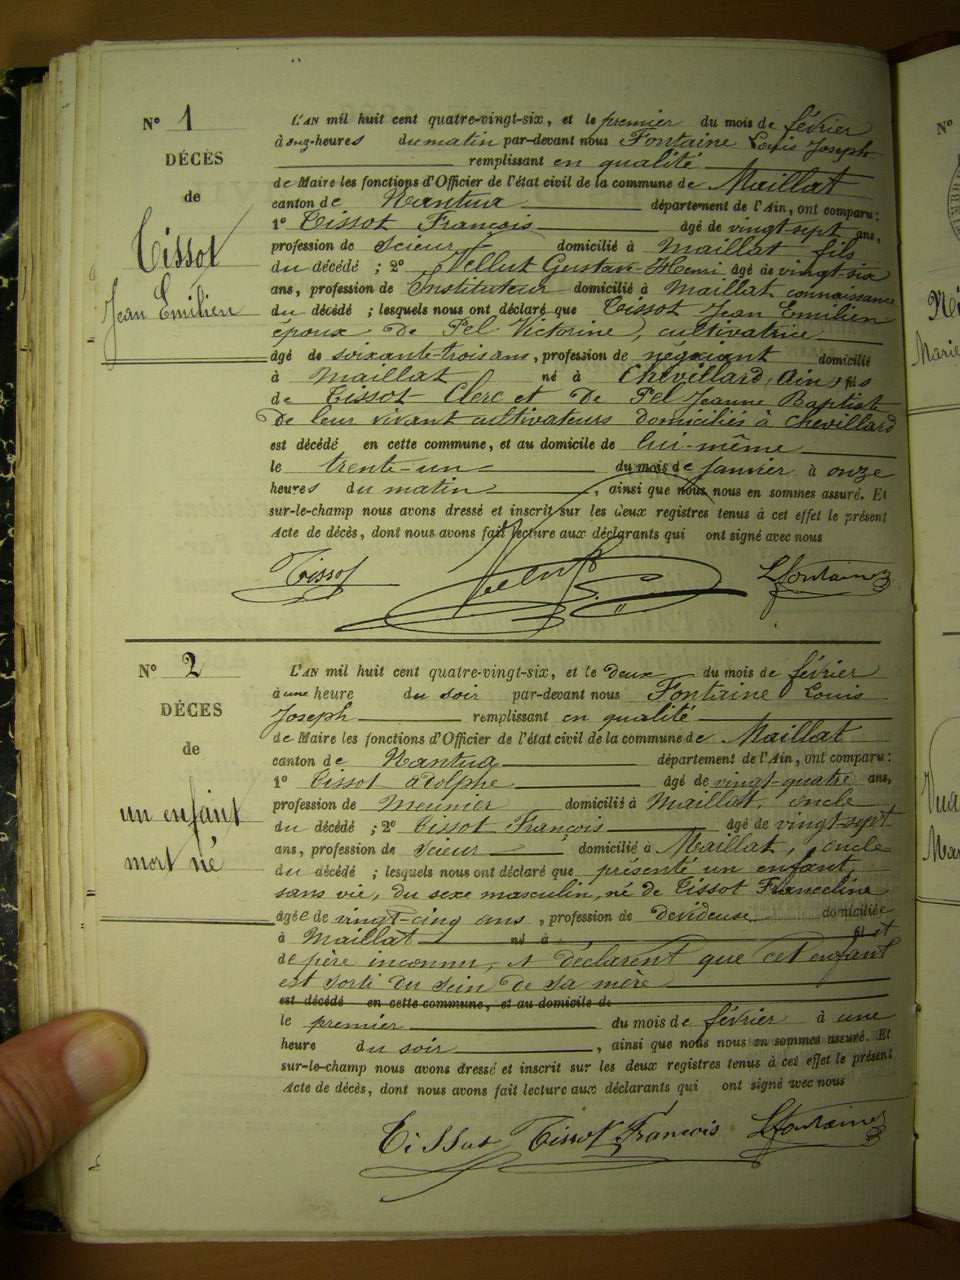 N° 1
DÉCÈS
de
Tissot
Jean Emilien
L'AN mil huit cent quatre-vingt-six, et le premier du mois de février
à onze heures du matin par-devant nous Fontaine Louis Joseph
remplissant en qualité
de Maire les fonctions d'Officier de l'état civil de la commune de Maillat
canton de Nantua département de l'Ain, ont comparu:
1° Tissot François âgé de vingt-sept ans,
profession de Scieur domicilié à Maillat fils
du décédé ; 2° Vellut Gustav-Henri âgé de vingt-six
ans, profession de Instituteur domicilié à Maillat connaissance
du décédé ; lesquels nous ont déclaré que Tissot Jean Emilien
époux de Pel Victorine, cultivatrice
âgé de soixante-trois ans, profession de négociant domicilié
à Maillat né à Chevillard, Ain, fils
de Tissot Clerc et De Pel Jeanne Baptiste
De leur vivant cultivateurs domiciliés à Chevillard
est décédé en cette commune, et au domicile de lui-même
le trente-un du mois de janvier à onze
heures du matin, ainsi que nous nous en sommes assuré. Et
sur-le-champ nous avons dressé et inscrit sur les deux registres tenus à cet effet le présent
Acte de décès, dont nous avons fait lecture aux déclarants qui ont signé avec nous
Tissot Vellut L Fontaine
N° 2
DÉCES
de
un enfant
mort né
L'AN mil huit cent quatre-vingt-six, et le deux du mois de février
à une heure du soir par-devant nous Fontaine Louis
Joseph remplissant en qualité
de Maire les fonctions d'Officier de l'état civil de la commune de Maillat
canton de Nantua département de l'Ain, ont comparu:
1° Tissot Adolphe âgé de vingt-quatre ans,
profession de Meunier domicilié à Maillat, oncle
du décédé ; 2° Tissot François âgé de vingt-sept
ans, profession de Scieur domicilié à Maillat, oncle
du décédé ; lesquels nous ont déclaré que présenté un enfant,
sans vie, du sexe masculin, né de Tissot Franceline
âgée de vingt-cinq ans, profession de devideuse domiciliée
à Maillat né à fil et
de père inconnu, et déclarent que cet enfant
est sorti du sein de sa mère
est décédé en cette commune, et au domicile de
le premier du mois de février à une
heure du soir, ainsi que nous nous en sommes assuré. Et
sur-le-champ nous avons dressé et inscrit sur les deux registres tenus à cet effet le présent
Acte de décès, dont nous avons fait lecture aux déclarants qui ont signé avec nous
Tissot Tissot François L Fontaine
N°
Marie